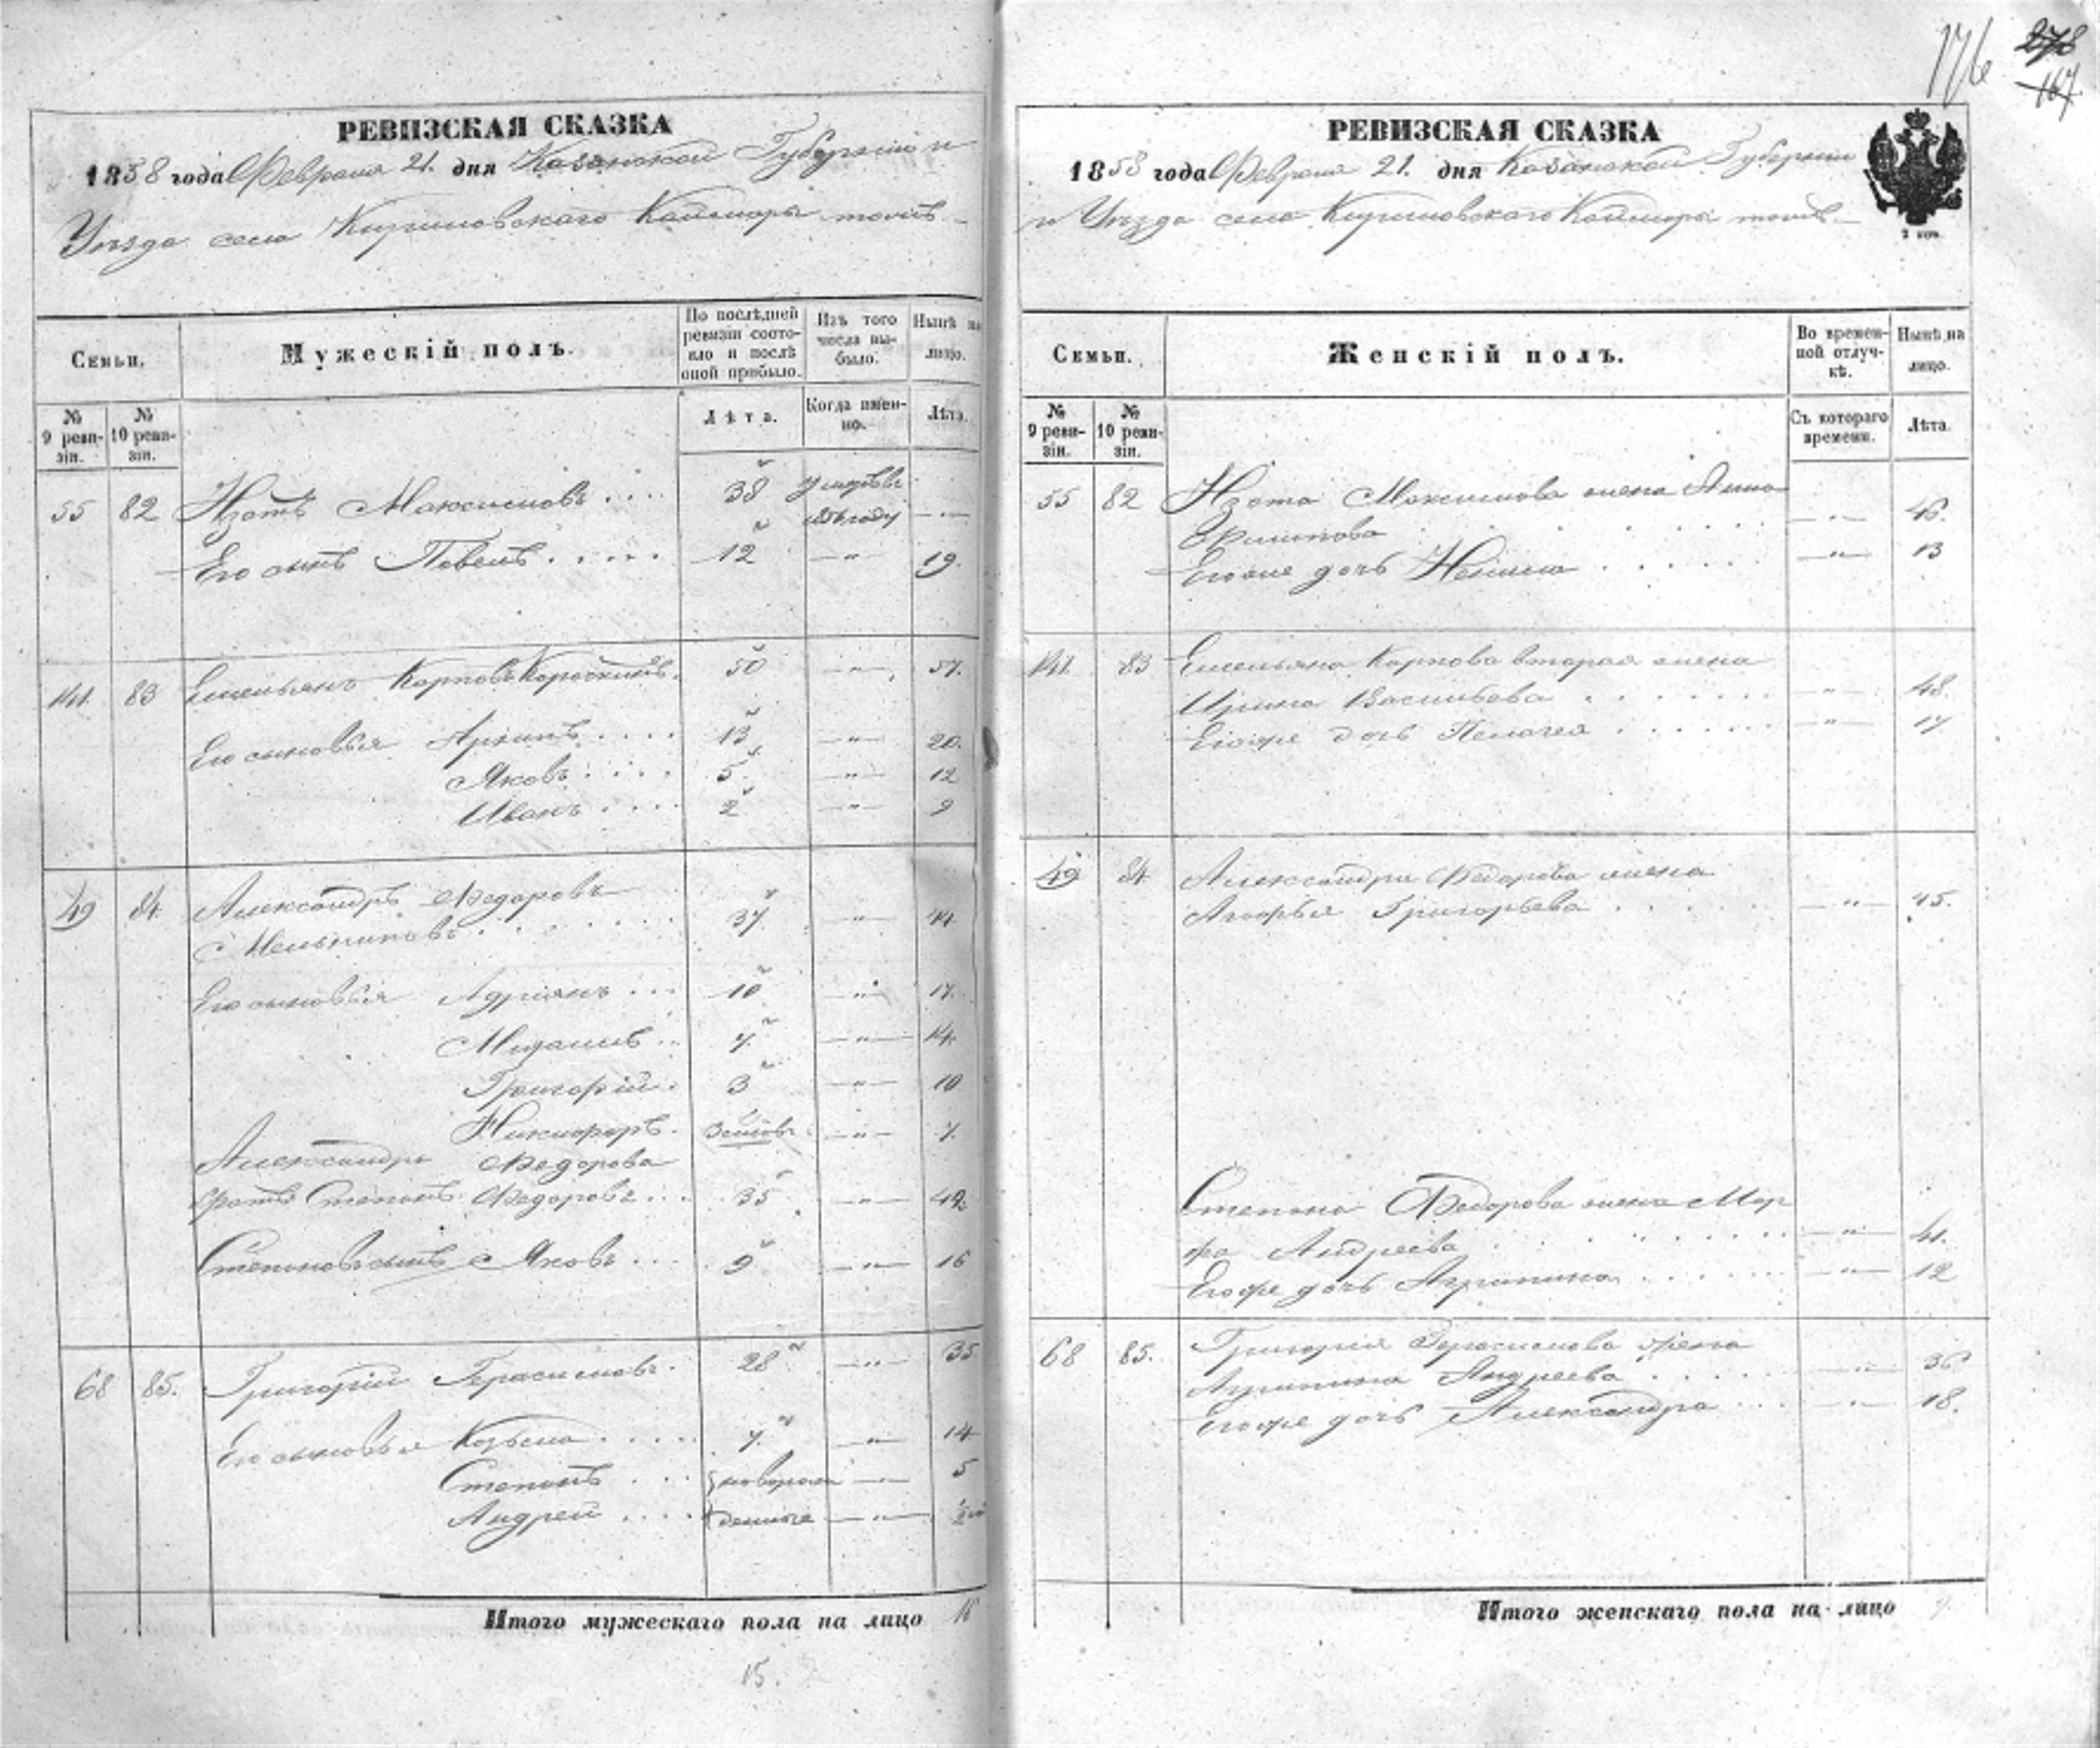 176 278
167
РЕВИЗСКАЯ СКАЗКА
1858 года Февраля 21. дня Казанской Губерніи и
Уѣзда села Кайморы тожъ
Семьи.
Мужескій полъ.
По послѣдней ревизіи состояло и послѣ оной прибыло.
Изъ того числа выбыло.
Нынѣ на лицо.
№ 9 ревизіи.
№ 10 ревизіи.
Лѣта.
Когда именно.
Лѣта.
55 82 Изотъ Максимовъ .... 38 умеръ
185 году
Его сынъ Павелъ ..... 12 — " — 19.
141. 83 Емельянъ Карповъ 50 — " — 57.
Его сыновья Архипъ .... 13 — " — 20.
Яковъ .... 5 — " — 12
Иванъ .... 2 — " — 9
49 84 Александръ Ѳедоровъ
Мельниковъ 37 — " — 44
Его сыновья Адріянъ ... 10 — " — 17.
7 — " — 14.
Григорій . 3 — " — 10
Никифоръ. — " — 7.
Александра Ѳедорова
братъ Степанъ Ѳедоровъ ... 35 — " — 42
Степановъ сынъ Яковъ ... 9 — " — 16
68 85. Григорій Герасимовъ. 28 — " — 35
Его сыновья Козьма .... 7. — " — 14
Степанъ новорож — " — 5
Андрей .... денные — " —
Итого мужескаго пола на лицо 16
15.
РЕВИЗСКАЯ СКАЗКА
1858 года Февраля 21. дня Казанской Губерніи
и Уѣзда села Кайморы тожъ
2 коп.
Семьи.
Женскій полъ.
Во временной отлучкѣ.
Нынѣ на лицо.
№ 9 ревизіи.
№ 10 ревизіи.
Съ котораго времени.
Лѣта.
55 82 Изота Максимова жена Анна
Филипова — " — 46.
Его же дочь — " — 13
141. 83 Емельяна Карпова вторая жена
Ирина Васильева — " — 48.
Его же дочь Пелагея — " — 17
49 84 Александра Ѳедорова жена
Агафья Григорьева — " — 45.
Степана Ѳедорова жена Мар
фа Андреева — " — 41.
Его же дочь Агрипина — " — 12
68 85. Григорія Герасимова жена
Агрипина Андреева — " — 36
Его же дочь Александра ... — " — 18.
Итого женскаго пола на лицо 9.